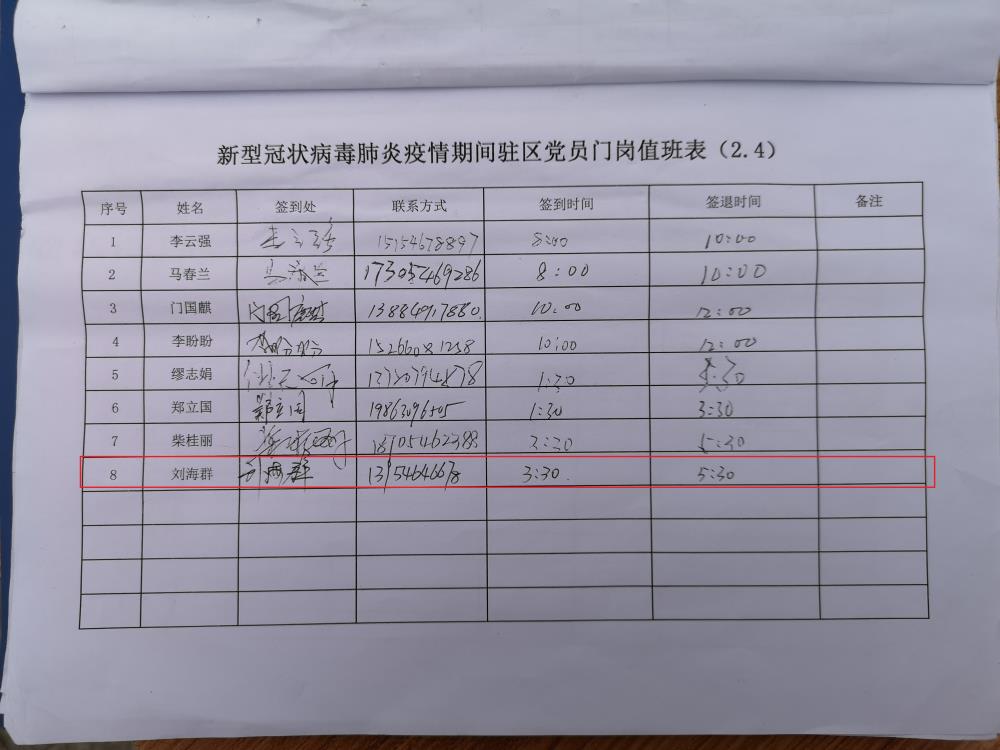 新型冠状病毒肺炎疫情期间驻区党员门岗值班表（2.4）
序号 姓名 签到处 联系方式 签到时间 签退时间 备注
1 李云强 李云强 15154678897 8:00 10:00
2 马春兰 马春兰 17305469286 8:00 10:00
3 门国麒 门国麒 10:00 12:00
4 李盼盼 李盼盼 10:00 12:00
5 缪志娟 1:30 3:30
6 郑立国 郑立国 1:30 3:30
7 柴桂丽 柴桂丽 18705462388 3:30 5:30
8 刘海群 刘海群 3:30 5:30